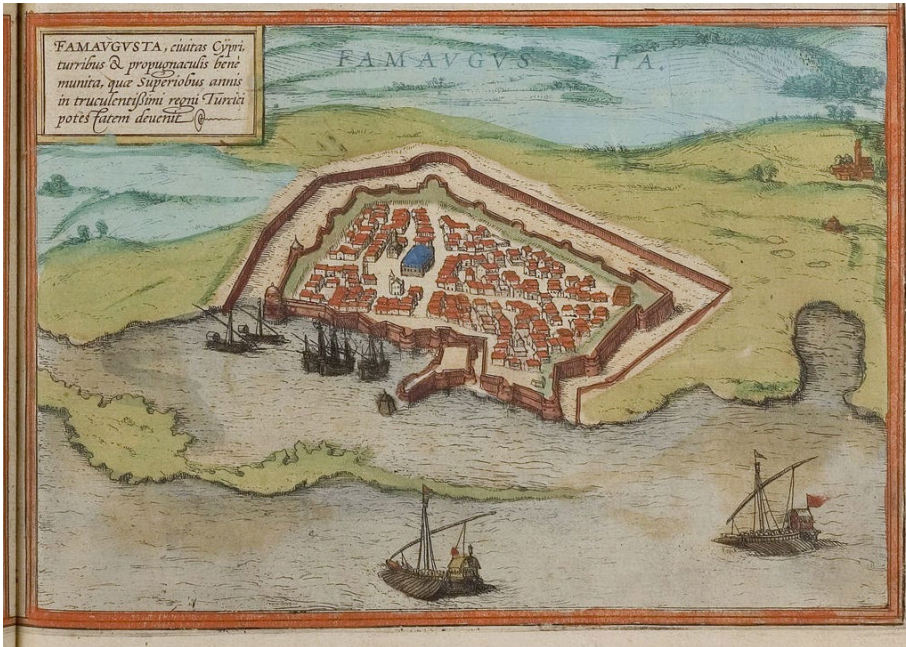 FAMAVGVSTA, ciuitas Cÿpri,
turribus & propugnaculis bene
munita, quæ Superiobus annis
in truculentißimi regni Turcici
potestatem deuenit
FAMAVGVSTA.